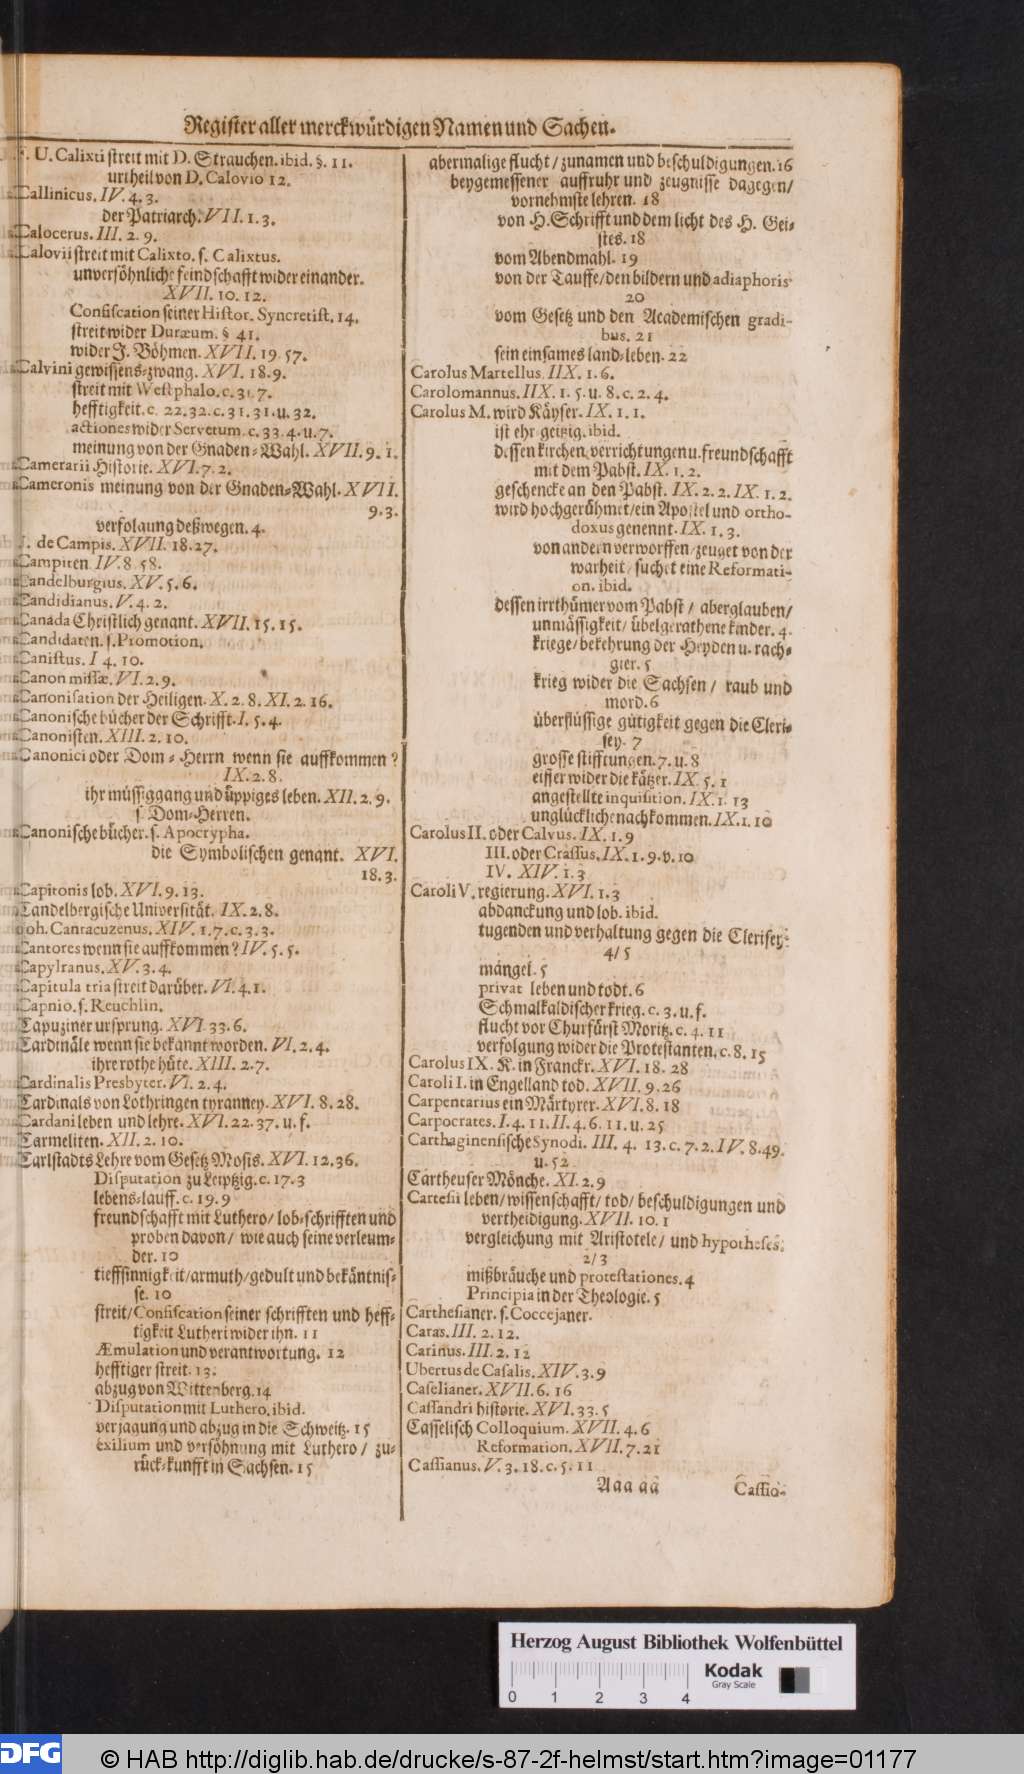 Register aller merckwürdigen Namen und Sachen.
F. U. Calixti streit mit D. Strauchen. ibid. §. 11.
urtheil von D. Calovio 12.
Callinicus. IV. 4. 3.
der Patriarch. VII. 1. 3.
Calocerus. III. 2. 9.
Calovii streit mit Calixto. s. Calixtus.
unversöhnliche feindschafft wider einander.
XVII. 10. 12.
Confiscation seiner Histor. Syncretist. 14.
streit wider Duræum. § 41.
wider J. Böhmen. XVII. 19. 57.
Calvini gewissens-zwang. XVI. 18. 9.
streit mit Westphalo. c. 31. 7.
hefftigkeit. c. 22. 32. c. 31. 31. u. 32.
actiones wider Servetum. c. 33. 4. u. 7.
meinung von der Gnaden-Wahl. XVII. 9. 1.
Camerarii Historie. XVI. 7. 2.
Cameronis meinung von der Gnaden-Wahl. XVII.
9. 3.
verfolgung deßwegen. 4.
J. de Campis. XVII. 18. 27.
Campiten. IV. 8. 58.
Candelburgius. XV. 5. 6.
Candidianus. V. 4. 2.
Canada Christlich genant. XVII. 15. 15.
Candidaten. s. Promotion.
Canistus. I 4. 10.
Canon missæ. VI. 2. 9.
Canonisation der Heiligen. X. 2. 8. XI. 2. 16.
Canonische bücher der Schrifft. I. 5. 4.
Canonisten. XIII. 2. 10.
Canonici oder Dom-Herrn wenn sie auffkommen?
IX. 2. 8.
ihr müssiggang und üppiges leben. XII. 2. 9.
s. Dom-Herren.
Canonische bücher. s. Apocrypha.
die Symbolischen genant. XVI.
18. 3.
Capitonis lob. XVI. 9. 13.
Candelbergische Universität. IX. 2. 8.
Joh. Cantacuzenus. XIV. 1. 7. c. 3. 3.
Cantores wenn sie auffkommen? IV. 5. 5.
Capylranus. XV. 3. 4.
Capitula tria streit darüber. VI. 4. 1.
Capnio. s. Reuchlin.
Capuziner ursprung. XVI. 33. 6.
Cardinäle wenn sie bekannt worden. VI. 2. 4.
ihre rothe hüte. XIII. 2. 7.
Cardinalis Presbyter. VI. 2. 4.
Cardinals von Lothringen tyranney. XVI. 8. 28.
Cardani leben und lehre. XVI. 22. 37. u. f.
Carmeliten. XII. 2. 10.
Carlstadts Lehre vom Gesetz Mosis. XVI. 12. 36.
Disputation zu Leipzig. c. 17. 3
lebens-lauff. c. 19. 9
freundschafft mit Luthero/ lob-schrifften und
proben davon/ wie auch seine verleum-
der. 10
tieffsinnigkeit/armuth/gedult und bekäntnis-
se. 10
streit/ Confiscation seiner schrifften und heff-
tigkeit Lutheri wider ihn. 11
Æmulation und verantwortung. 12
hefftiger streit. 13.
abzug von Wittenberg. 14
Disputation mit Luthero. ibid.
verjagung und abzug in die Schweitz. 15
exilium und versöhnung mit Luthero/ zu-
rück-kunfft in Sachsen. 15
abermalige flucht/ zunamen und beschuldigungen. 16
beygemessener auffruhr und zeugnisse dagegen/
vornehmste lehren. 18
von H. Schrifft und dem licht des H. Gei-
stes. 18
vom Abendmahl. 19
von der Tauffe/ den bildern und adiaphoris
20
vom Gesetz und den Academischen gradi-
bus. 21
sein einsames land-leben. 22
Carolus Martellus. IIX. 1. 6.
Carolomannus. IIX. 1. 5. u. 8. c. 2. 4.
Carolus M. wird Käyser. IX. 1. 1.
ist ehr-geitzig. ibid.
dessen kirchen verrichtungen u. freundschafft
mit dem Pabst. IX. 1. 2.
geschencke an den Pabst. IX. 2. 2. IX. 1. 2.
wird hochgerühmet/ein Apostel und ortho-
doxus genennt. IX. 1. 3.
von andern verworffen/zeuget von der
warheit/ suchet eine Reformati-
on. ibid.
dessen irrthümer vom Pabst/ aberglauben/
unmässigkeit/ übelgerathene kinder. 4.
kriege/ bekehrung der Heyden u. rach-
gier. 5
krieg wider die Sachsen/ raub und
mord. 6
überflüssige gütigkeit gegen die Cleri-
sey. 7
grosse stifftungen. 7. u. 8
eiffer wider die kätzer. IX. 5. 1
angestellte inquisition. IX. 1. 13
unglückliche nachkommen. IX. 1. 10
Carolus II. oder Calvus. IX. 1. 9
III. oder Crassus. IX. 1. 9. v. 10
IV. XIV. 1. 3
Caroli V. regierung. XVI. 1. 3
abdanckung und lob. ibid.
tugenden und verhaltung gegen die Clerisey.
4/5
mängel. 5
privat leben und todt. 6
Schmalkaldischer krieg. c. 3. u. f.
flucht vor Churfürst Moritz. c. 4. 11
verfolgung wider die Protestanten. c. 8. 15
Carolus IX. K. in Franckr. XVI. 18. 28
Caroli I. in Engelland tod. XVII. 9. 26
Carpentarius ein Märtyrer. XVI. 8. 18
Carpocrates. I. 4. 11. II. 4. 6. 11. u. 25
Carthaginensische Synodi. III. 4. 13. c. 7. 2. IV. 8. 49.
u. 52
Cartheuser Mönche. XI. 2. 9
Cartesii leben/ wissenschafft/ tod/ beschuldigungen und
vertheidigung. XVII. 10. 1
vergleichung mit Aristotele/ und hypotheses.
2/3
mißbräuche und protestationes. 4
Principia in der Theologie. 5
Carthesianer. s. Coccejaner.
Caras. III. 2. 12.
Carinus. III. 2. 12
Ubertus de Casalis. XIV. 3. 9
Caselianer. XVII. 6. 16
Cassandri historie. XVI. 33. 5
Casselisch Colloquium. XVII. 4. 6
Reformation. XVII. 7. 21
Cassianus. V. 3. 18. c. 5. 11
Aaa aa Cassio-
Herzog August Bibliothek Wolfenbüttel
0 1 2 3 4
Kodak
Gray Scale
DFG © HAB http://diglib.hab.de/drucke/s-87-2f-helmst/start.htm?image=01177